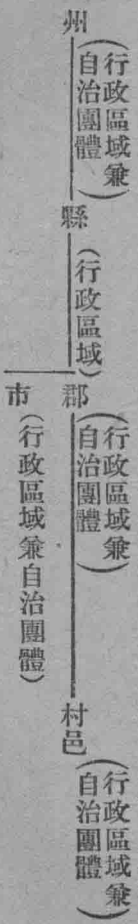 州（行政區域兼自治團體）
縣（行政區域）
郡（行政區域兼自治團體）
村邑（行政區域兼自治團體）
市（行政區域兼自治團體）